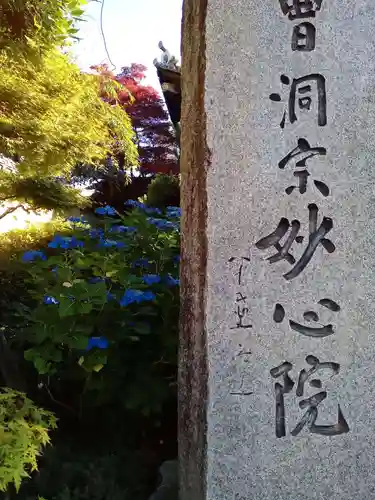 曹洞宗妙心院